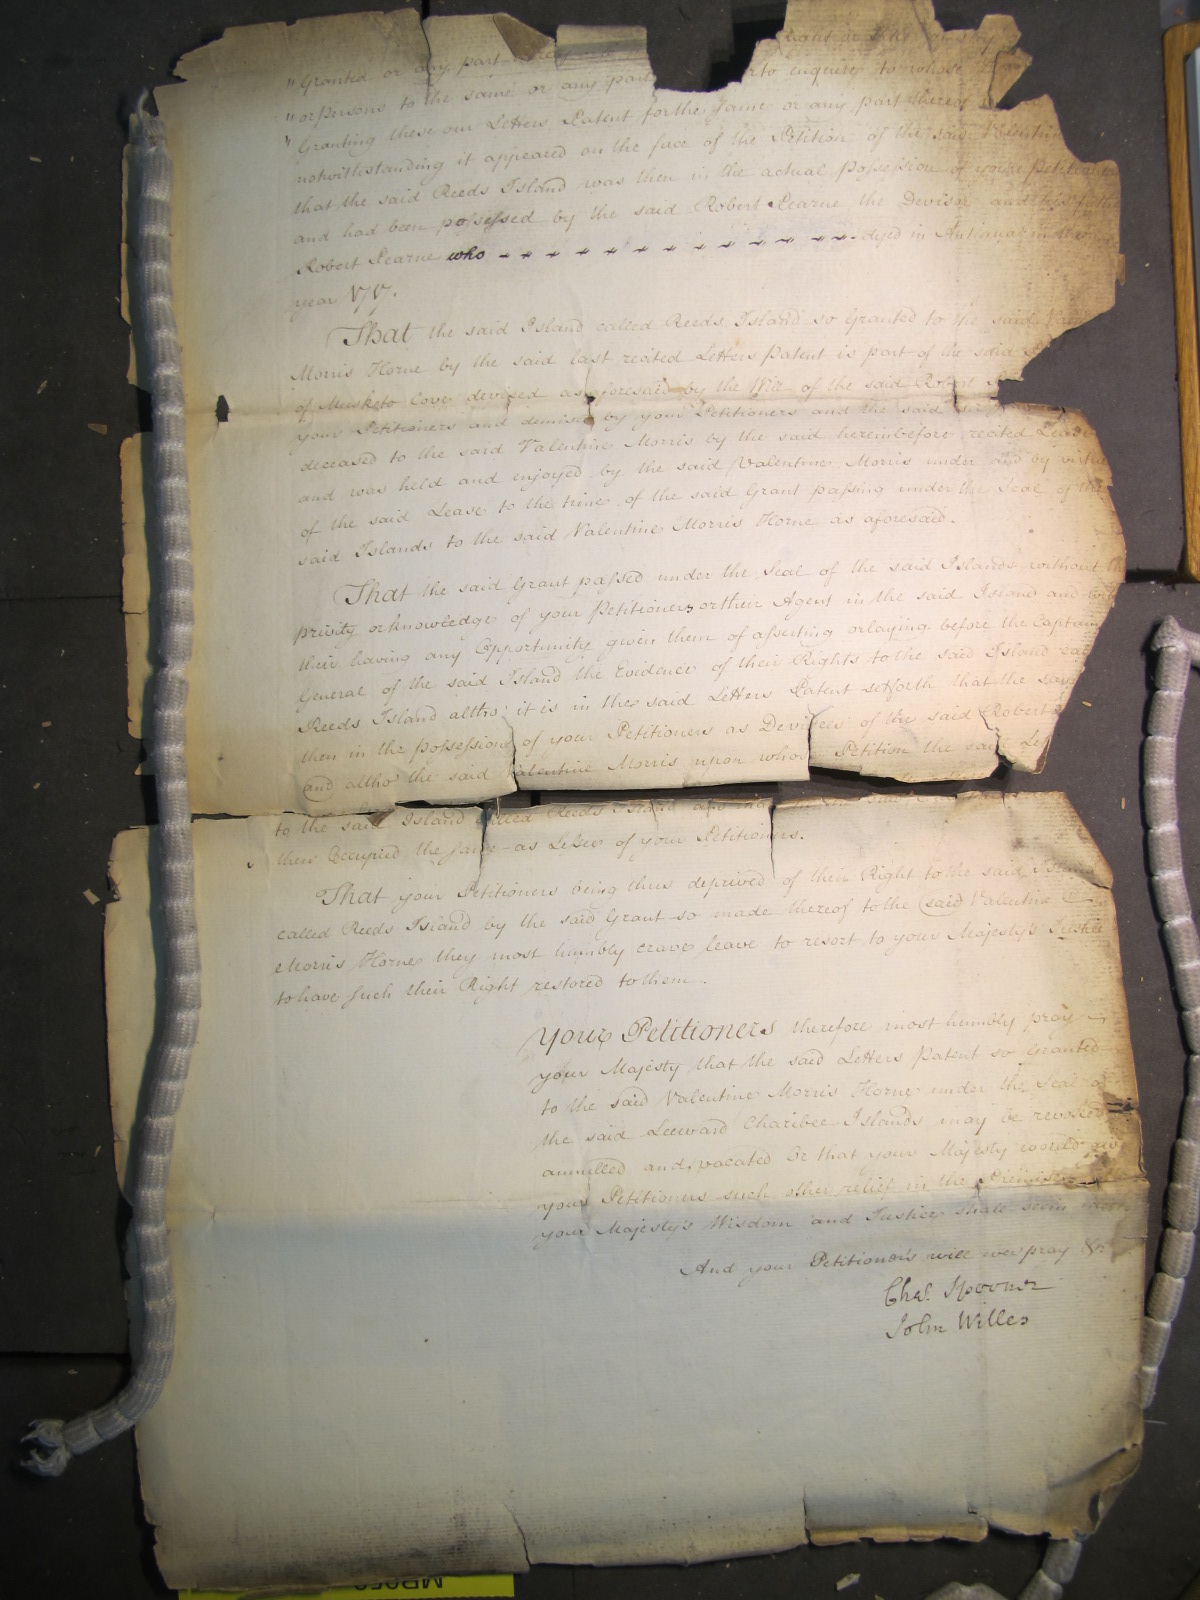 Right or
" Granted or any part
" or Persons to the same or any part to enquire to whose
" Granting these our Letters Patent for the same or any part thereof
notwithstanding it appeared on the face of the Petition of the said Valentine
that the said Reeds Island was then in the actual Possession of your Petitioners
and had been possessed by the said Robert Pearne the Devisor and his father
Robert Pearne who dyed in Antigua in the
year
That the said Island called Reeds Island so Granted to the said
Morris Horne by the said last recited Letters Patent is part of the said
of Musketo Cove devised as aforesaid by the Will of the said Robert
your Petitioners and demised by your Petitioners and the said
deceased to the said Valentine Morris by the said hereinbefore recited Lease
and was held and enjoyed by the said Valentine Morris under and by virtue
of the said Lease to the time of the said Grant passing under the Seal of the
said Islands to the said Valentine Morris Horne as aforesaid.
That the said Grant passed under the Seal of the said Islands without the
privity or knowledge of your Petitioners or their Agent in the said Island and
their having any Opportunity given them of asserting or laying before the Captain
General of the said Island the Evidence of their Rights to the said Island
Reeds Island altho' it is in the said Letters Patent set forth that the said
then in the Possession of your Petitioners as Devisees of the said Robert
and altho' the said Valentine Morris upon whose Petition the said
to the said Island called Reeds Island
then Occupied the same as Lessee of your Petitioners.
That your Petitioners being thus deprived of their Right to the said Island
called Reeds Island by the said Grant so made thereof to the said Valentine
Morris Horne they most humbly crave leave to resort to your Majesty's Justice
to have such their Right restored to them.
Your Petitioners therefore most humbly pray
your Majesty that the said Letters Patent so Granted
to the said Valentine Morris Horne under the Seal of
the said Leeward Charibee Islands may be revoked
annulled and vacated Or that your Majesty would give
your Petitioners such other relief in the Premisses
your Majesty's Wisdom and Justice shall seem meet
And your Petitioners will ever pray &c
Chas. Spooner
John Willes